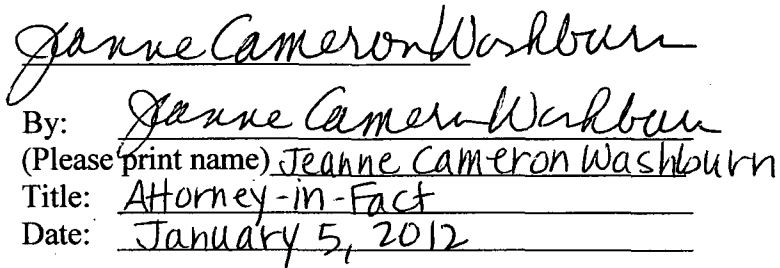 Jeanne Cameron Washburn
By: Jeanne Cameron Washburn
(Please print name) Jeanne Cameron Washburn
Title: Attorney-in-Fact
Date: January 5, 2012